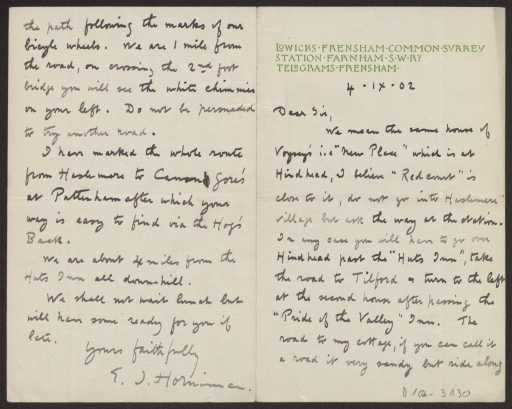 LOWICKS · FRENSHAM · COMMON · SURREY
STATION · FARNHAM · S · W · RY
TELEGRAMS · FRENSHAM ·
4 · IX · 02
Dear Sir,
We mean the same house of
Voysey's i.e "New Place" which is at
Hindhead, I believe "Redcourt" is
close to it, do not go into Haslemere
village but ask the way at the station.
In any case you will have to go over
Hindhead past the "Huts Inn", take
the road to Tilford & turn to the left
at the second house after passing the
"Pride of the Valley" Inn. The
road to my cottage, if you can call it
a road it very sandy but ride along
the path following the marks of our
bicycle wheels. We are 1 mile from
the road, on crossing the 2nd foot
bridge you will see the white chimnies
on your left. Do not be persuaded
to try another road.
I have marked the whole route
from Haslemere to Canon Gore's
at Puttenham after which your
way is easy to find via the Hog's
Back.
We are about 4 miles from the
Huts Inn all down hill.
We shall not wait lunch but
will have some ready for you if
late.
Yours faithfully
E. J. Horniman.